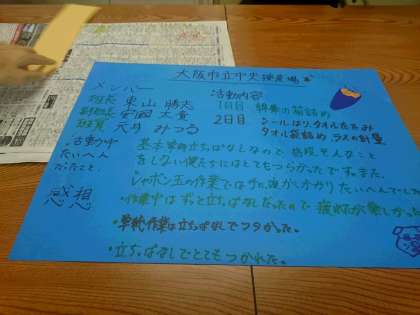 大阪市立中央授産場
メンバー
活動内容
班長 東山 勝夫
1日目 綿棒の袋詰め
副班長 大貴
2日目 シールはり、タオルたたみ
班員 天井 みつる
タオル袋詰め、ラスの計量
活動中
たいへん
だったこと。
基本常時立ちっぱなしなので、普段そんなこと
をしない僕たちにはとてもつらかったです。また、
シャボン玉の作業では手に液がかかりたいへんでした
感想
・作業中はずっと立ちっぱなしだったので疲れたが楽しかった
・単純作業は立ちっぱなしでつラかった。
・立ちっぱなしでとてもつかれた。